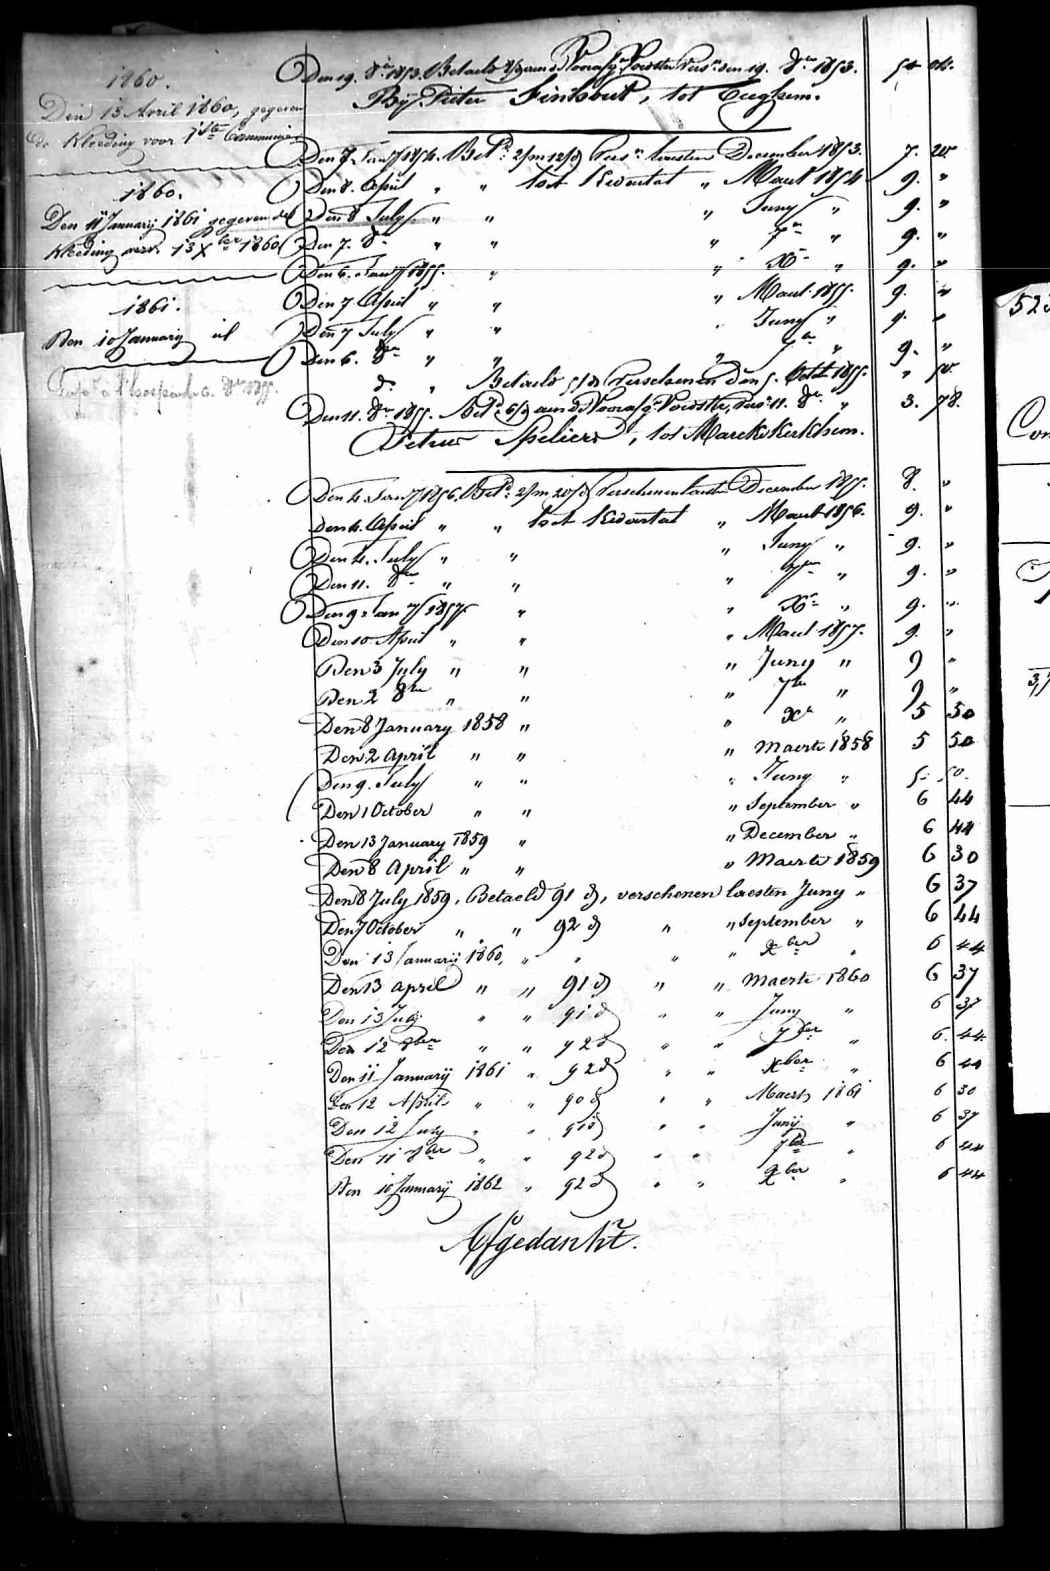 1860.
Den 13 April 1860, gegeven
de Kleeding voor 1ste Communie
1860.
Den 11 Januarij 1861 gegeven de
Kleeding verv. 13 Xber 1860
1861.
Den 10 January id
6. 8er 1855.
Den 19. 8er 1853. Betaeld aen de Voorsz. Voorster Vers. den 19. 8er 1853. 54
By Pieter Finhout, tot
Den 7. Jany 1854. Bet. 2/m 12/d Vers. laesten December 1853. 7. 20.
Den 8. April " " tot Kwartal " Maert 1854 9. "
Den 8 July " " " Juny " 9. "
Den 7. 8er " " " 7er " 9. "
Den 6. Jany 1855. " " Xr " 9. "
Den 7 April " " " Maert 1855. 9. "
Den 7 July " " " Juny " 9. "
Den 6. 8er " " " 7er " 9. "
do " Betaeld 5/d Verschenen den 5. 1855. " 50.
Den 11. 8er 1855. Bet. 6/d aen de Voorsz. Voorster, Vers. 11. 8er " 3. 78.
Petrus Speliers, tot Marckekerkhem.
Den 4. Jany 1856. Bet. 2/m 20/d Verschenen laesten December 1855. 8. "
Den 4. April " " tot Kwartal " Maert 1856. 9. "
Den 4. July " " " Juny " 9. "
Den 11. 8er " " " 7er " 9. "
Den 9 Jany 1857 " " Xr " 9. "
Den 10 April " " " Maert 1857. 9. "
Den 3 July " " " Juny " 9 "
Den 2 8er " " " 7er " 9 "
Den 8 January 1858 " " Xr " 5 50
Den 2 April " " " Maerte 1858 5 50
Den 9. July " " " Juny " 5 50.
Den 1 October " " " September " 6 44
Den 13 January 1859 " " December " 6 44
Den 8 April " " " Maerte 1859 6 30
Den 8 July 1859. Betaeld 91 d, verschenen laesten Juny " 6 37
Den 7 October " " 92 d " " September " 6 44
Den 13 Januarij 1860, " " " " Xber " 6 44
Den 13 April " " 91 d " " Maerte 1860 6 37
Den 13 July " " 91 d " " Juny " 6 37
Den 12 8ber " " 92 d " " 7ber " 6. 44.
Den 11 Januarij 1861 " 92 d " " Xber " 6 44
Den 12 April " " 90 d " " Maert 1861 6 30
Den 12 July " " 91 d " " Junij " 6 37
Den 11 8ber " " 92 d " " 7ber " 6 44
Den 10 Januarij 1862 " 92 d " " Xber " 6 44
Afgedankt.